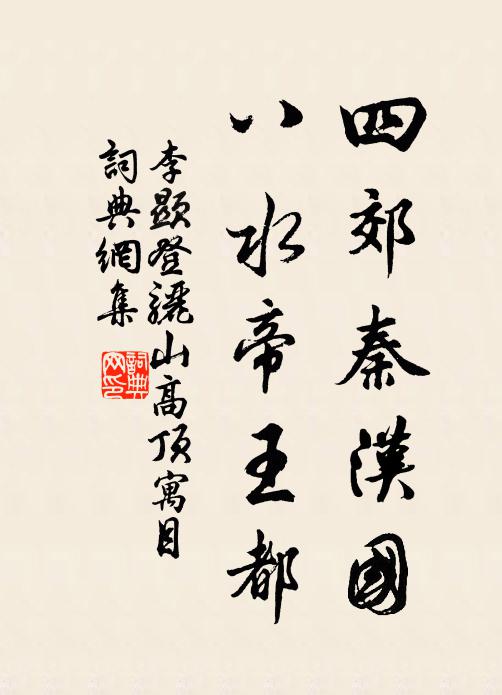 四郊秦漢國
八水帝王都
李顯登驪山高頂寓目
詞典網集
詞典网印